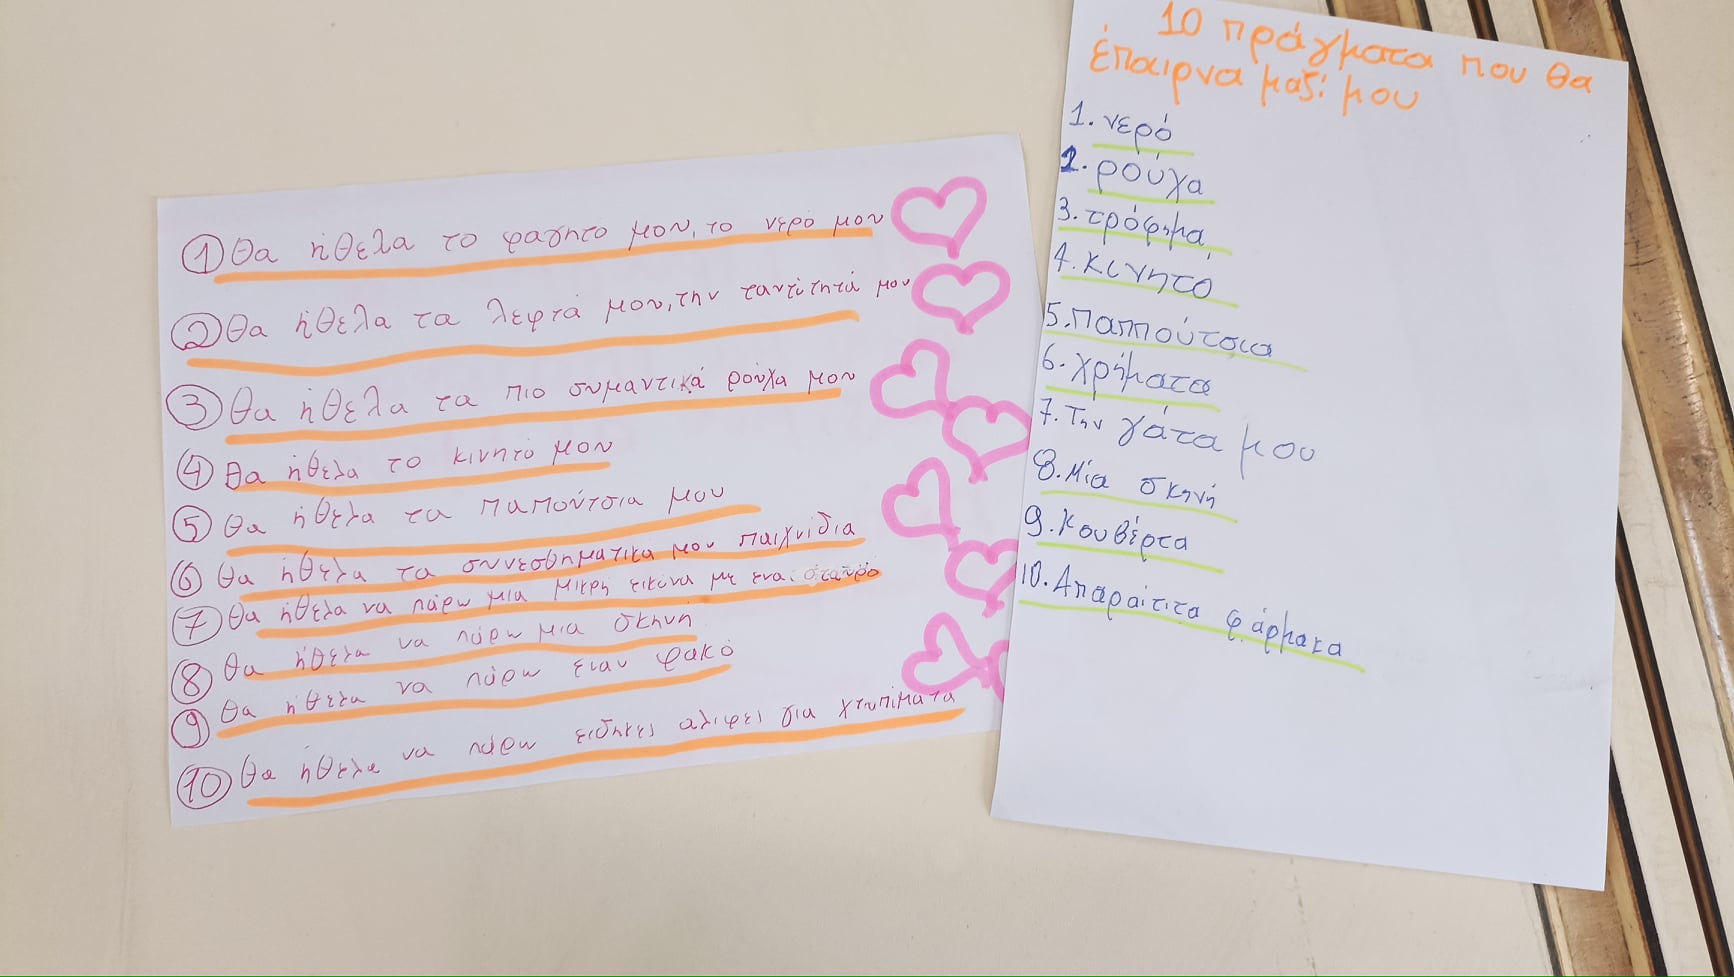 ① Θα ήθελα το φαγητό μου, το νερό μου
② Θα ήθελα τα λεφτά μου, την ταυτότητά μου
③ Θα ήθελα τα πιο συμαντικά ρούχα μου
④ Θα ήθελα το κινητό μου
⑤ Θα ήθελα τα παπούτσια μου
⑥ Θα ήθελα τα συνεσθηματικα μου παιχνίδια
⑦ Θα ήθελα να πάρω μια μικρή εικόνα με ένα σταυρό
⑧ Θα ήθελα να πάρω μια σκηνή
⑨ Θα ήθελα να πάρω εναν φακό
⑩ Θα ήθελα να πάρω ειδηκες αλιφει για χτυπίματα
10 πράγματα που θα
έπαιρνα μαζί μου
1. νερό
2. ρούχα
3. τρόφιμα
4. κινητό
5. παππούτσια
6. χρήματα
7. Την γάτα μου
8. Μία σκηνή
9. Κουβέρτα
10. Απαραίτιτα φάρμακα